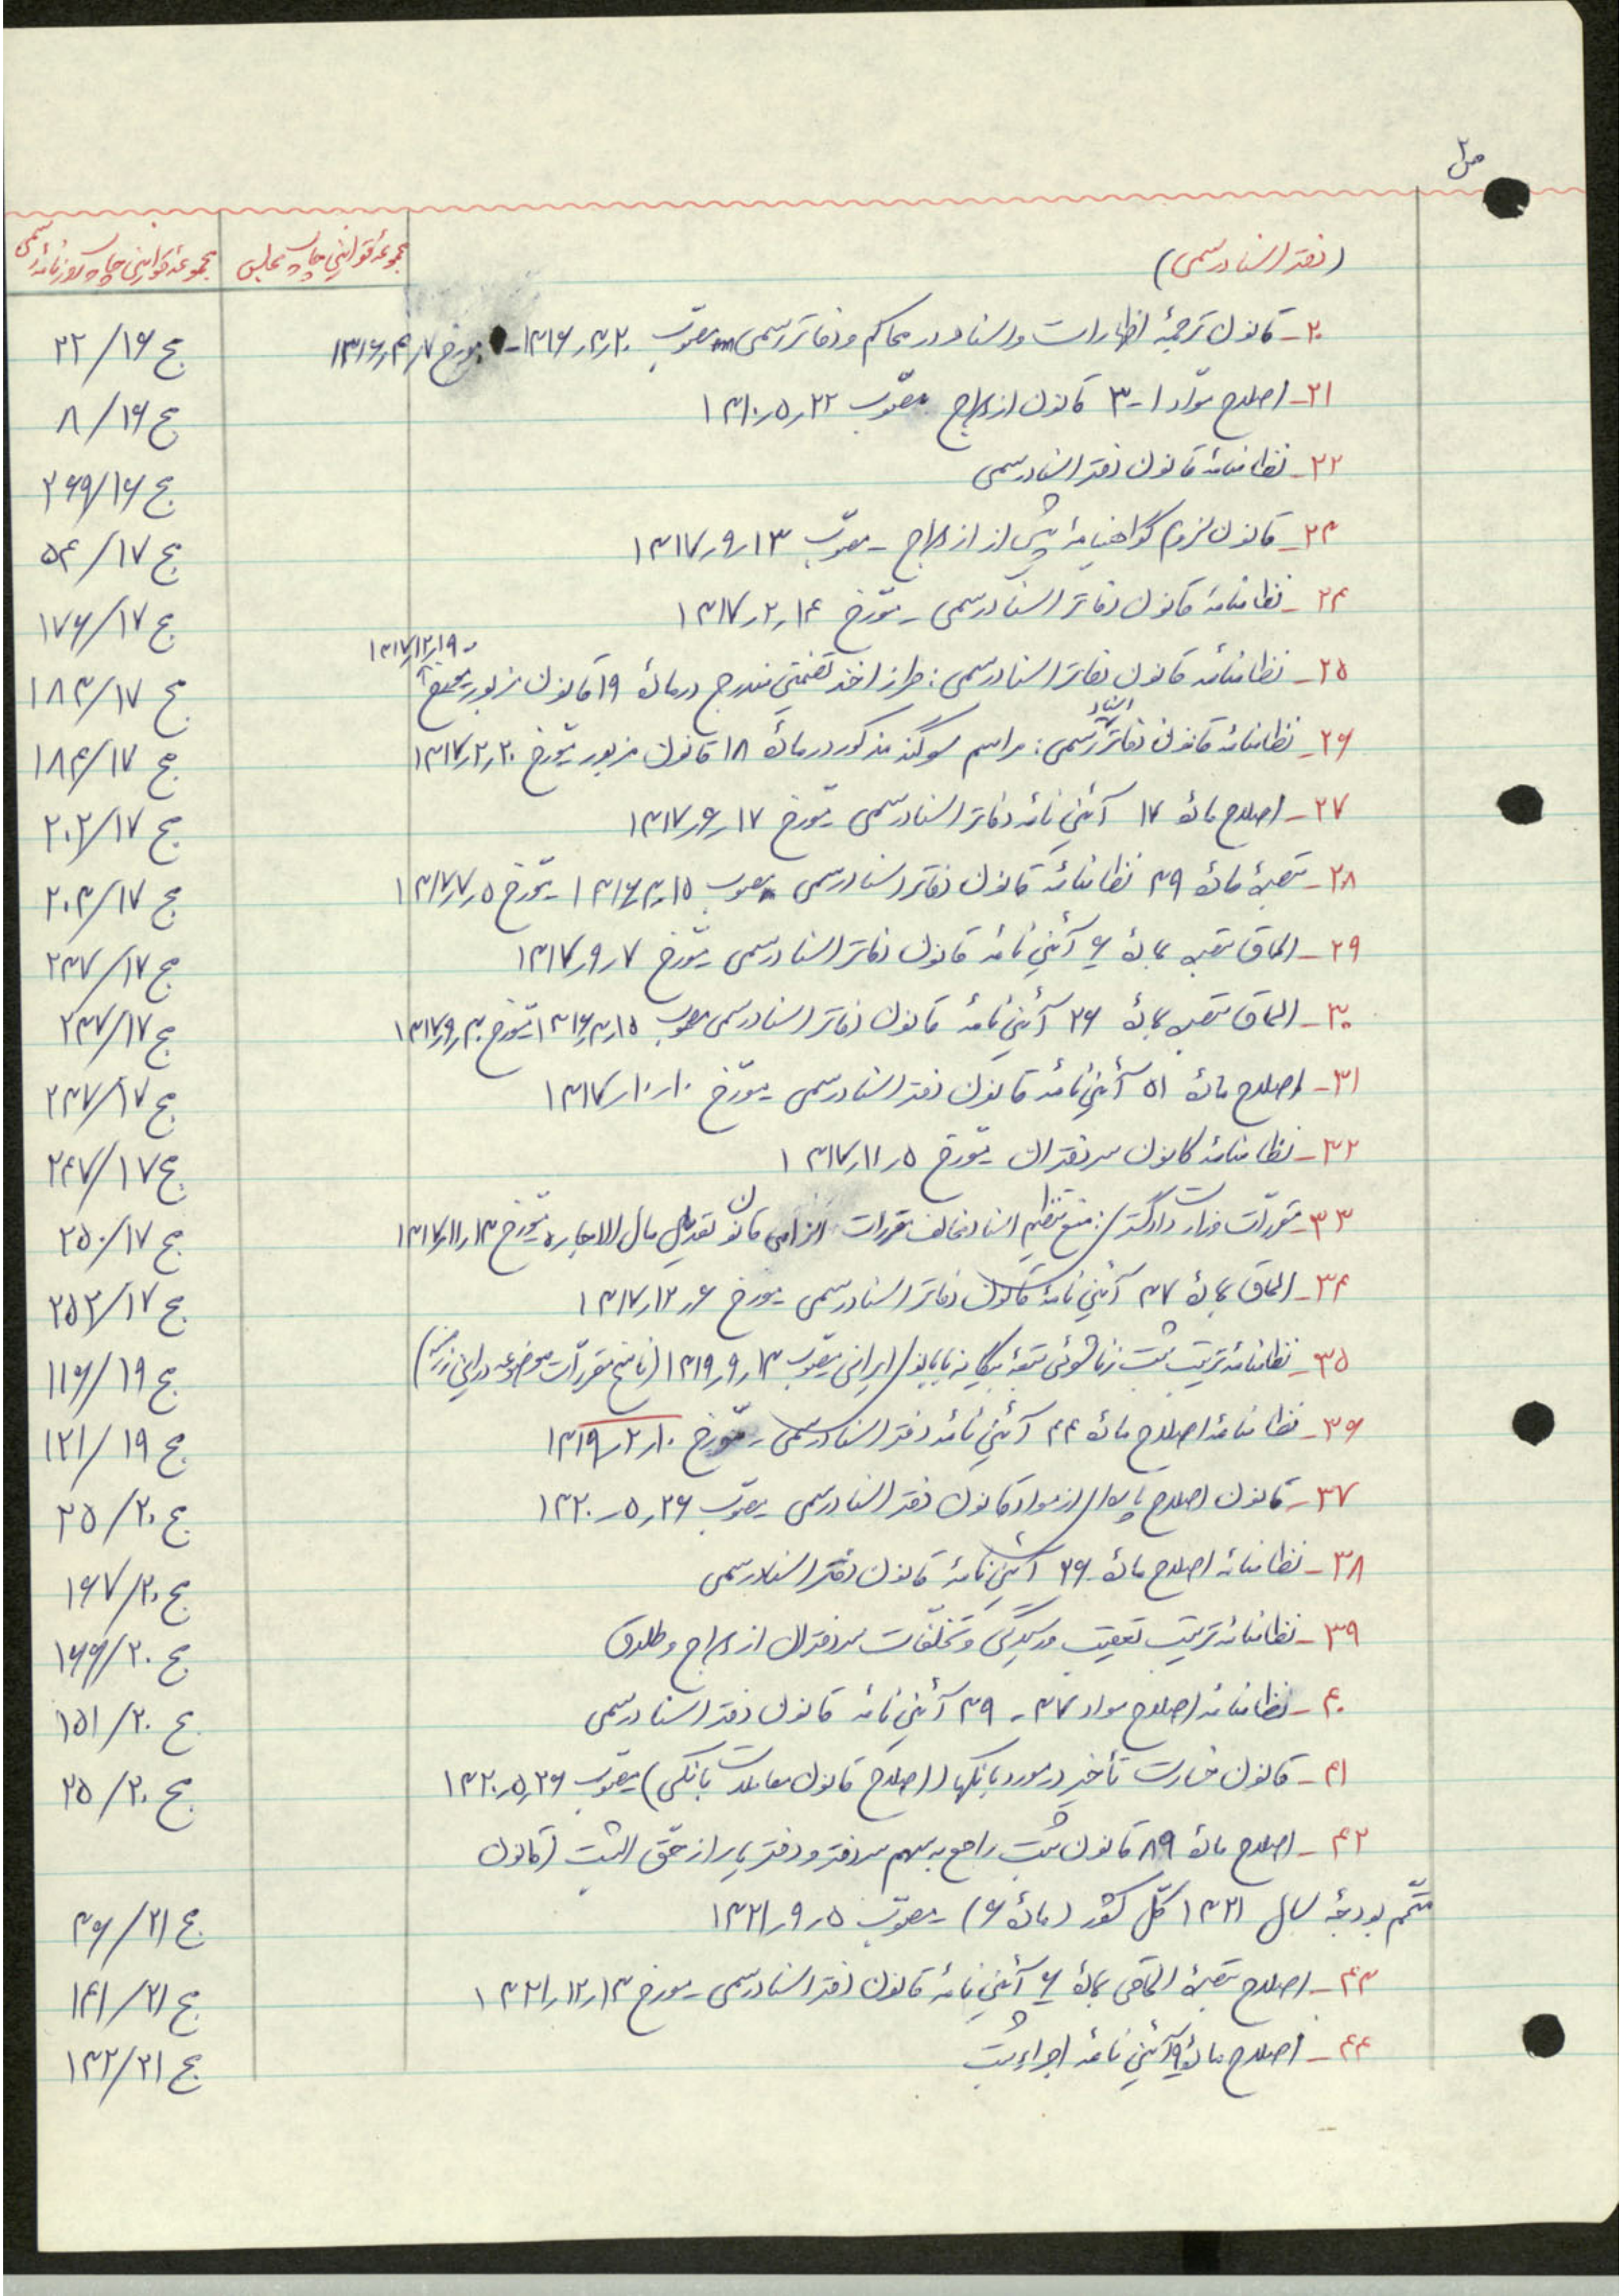 ص ۲
(دفتر اسناد رسمی)
مجموعهٔ قوانین چاپ مجلس
مجموعهٔ قوانین چاپ روزنامهٔ رسمی
۲۰- قانون ترجمهٔ اظهارات و اسناد در محاکم و دفاتر رسمی مصوّب ۱۳۱۶٫۳٫۲۰- مورخ ۱۳۱۶٫۴٫۷ ج ۲۲/۱۶
۲۱- اصلاح موّاد ۱-۳ قانون ازدواج مصّوب ۱۳۱۰٫۵٫۲۲ ج ۸/۱۶
۲۲- نظامنامهٔ قانون دفتر اسناد رسمی ج ۲۶۹/۱۶
۲۳- قانون لزوم گواهینامهٔ پیش از ازدواج - مصوّب ۱۳۱۷٫۹٫۱۳ ج ۵۴/۱۷
۲۴- نظامنامهٔ قانون دفاتر اسناد رسمی - مورّخ ۱۳۱۷٫۲٫۱۴ ج ۱۷۶/۱۷
۲۵- نظامنامه قانون دفاتر اسناد رسمی: طرز اخذ تضمینی مندرج در مادهٔ ۱۹ قانون مزبور مورّخ ۱۳۱۷٫۱۲٫۱۹ ج ۱۸۳/۱۷
۲۶- نظامنامهٔ قانون دفاتر اسناد رسمی: مراسم سوگند مذکور در مادهٔ ۱۸ قانون مزبور مورّخ ۱۳۱۷٫۲٫۲۰ ج ۱۸۴/۱۷
۲۷- اصلاح مادهٔ ۱۷ آئین نامه دفاتر اسناد رسمی مورّخ ۱۳۱۷٫۶٫۱۷ ج ۲۰۲/۱۷
۲۸- تبصرهٔ مادهٔ ۳۹ نظامنامهٔ قانون دفاتر اسناد رسمی مصوب ۱۳۱۶٫۳٫۱۵ مورّخ ۱۳۱۷٫۷٫۵ ج ۲۰۳/۱۷
۲۹- الحاق تبصره بمادهٔ ۶ آئین نامهٔ قانون دفاتر اسناد رسمی مورّخ ۱۳۱۷٫۹٫۷ ج ۲۳۷/۱۷
۳۰- الحاق تبصره بمادهٔ ۲۶ آئین نامهٔ قانون دفاتر اسناد رسمی مصوب ۱۳۱۶٫۳٫۱۵ مورّخ ۱۳۱۷٫۹٫۳۰ ج ۲۳۷/۱۷
۳۱- اصلاح مادهٔ ۵۱ آئین نامهٔ قانون دفتر اسناد رسمی مورّخ ۱۳۱۷٫۱۰٫۱۰ ج ۲۳۷/۱۷
۳۲- نظامنامهٔ کانون سردفتران مورّخ ۱۳۱۷٫۱۱٫۵ ج ۲۴۷/۱۷
۳۳- مقررّات وزارت دادگستری: منع تنظیم اسناد مخالف مقررات الزامی قانون تعدیل مال الاجاره مورّخ ۱۳۱۷٫۱۱٫۱۳ ج ۲۵۰/۱۷
۳۴- الحاق بمادهٔ ۳۷ آئین نامهٔ قانون دفاتر اسناد رسمی مورخ ۱۳۱۷٫۱۲٫۶ ج ۲۵۲/۱۷
۳۵- نظامنامهٔ ترتیب ثبت زناشوئی تبعهٔ بیگانه با بانوی ایرانی مصوّب ۱۳۱۹٫۹٫۱۳ (ناسخ مقررّات موضوعه در این زمینه) ج ۱۱۶/۱۹
۳۶- نظامنامهٔ اصلاح مادهٔ ۴۴ آئین نامهٔ دفتر اسناد رسمی - مورّخ ۱۳۱۹٫۲٫۱۰ ج ۱۲۱/۱۹
۳۷- قانون اصلاح پاره‌ای از مواد قانون دفتر اسناد رسمی مصوّب ۱۳۲۰٫۵٫۲۶ ج ۲۵/۲۰
۳۸- نظامنامه اصلاح مادهٔ ۲۶ آئین نامهٔ قانون دفتر اسناد رسمی ج ۱۶۷/۲۰
۳۹- نظامنامه ترتیب تعقیب و رسیدگی و تخلّفات سردفتران ازدواج و طلاق ج ۱۶۶/۲۰
۴۰- نظامنامه اصلاح مواد ۳۷ - ۳۹ آئین نامهٔ قانون دفتر اسناد رسمی ج ۱۵۱/۲۰
۴۱- قانون خسارت تأخیر در مورد بانکها (اصلاح قانون معاملات بانکی) مصّوب ۱۳۲۰٫۵٫۲۶ ج ۲۵/۲۰
۴۲- اصلاح مادهٔ ۸۹ قانون ثبت راجع به سهم سردفتر و دفتریار از حّق الثبت (قانون
متّمم بودجهٔ سال ۱۳۲۱ کلّ کشور (مادهٔ ۶) - مصوّب ۱۳۲۱٫۹٫۵ ج ۳۶/۲۱
۴۳- اصلاح تبصرهٔ الحاقی بمادهٔ ۶ آئین نامهٔ قانون دفتر اسناد رسمی - مورخ ۱۳۲۱٫۱۲٫۱۳ ج ۱۴۱/۲۱
۴۴- اصلاح مادهٔ ۹ آئین نامهٔ اجراء ثبت ج ۱۳۲/۲۱